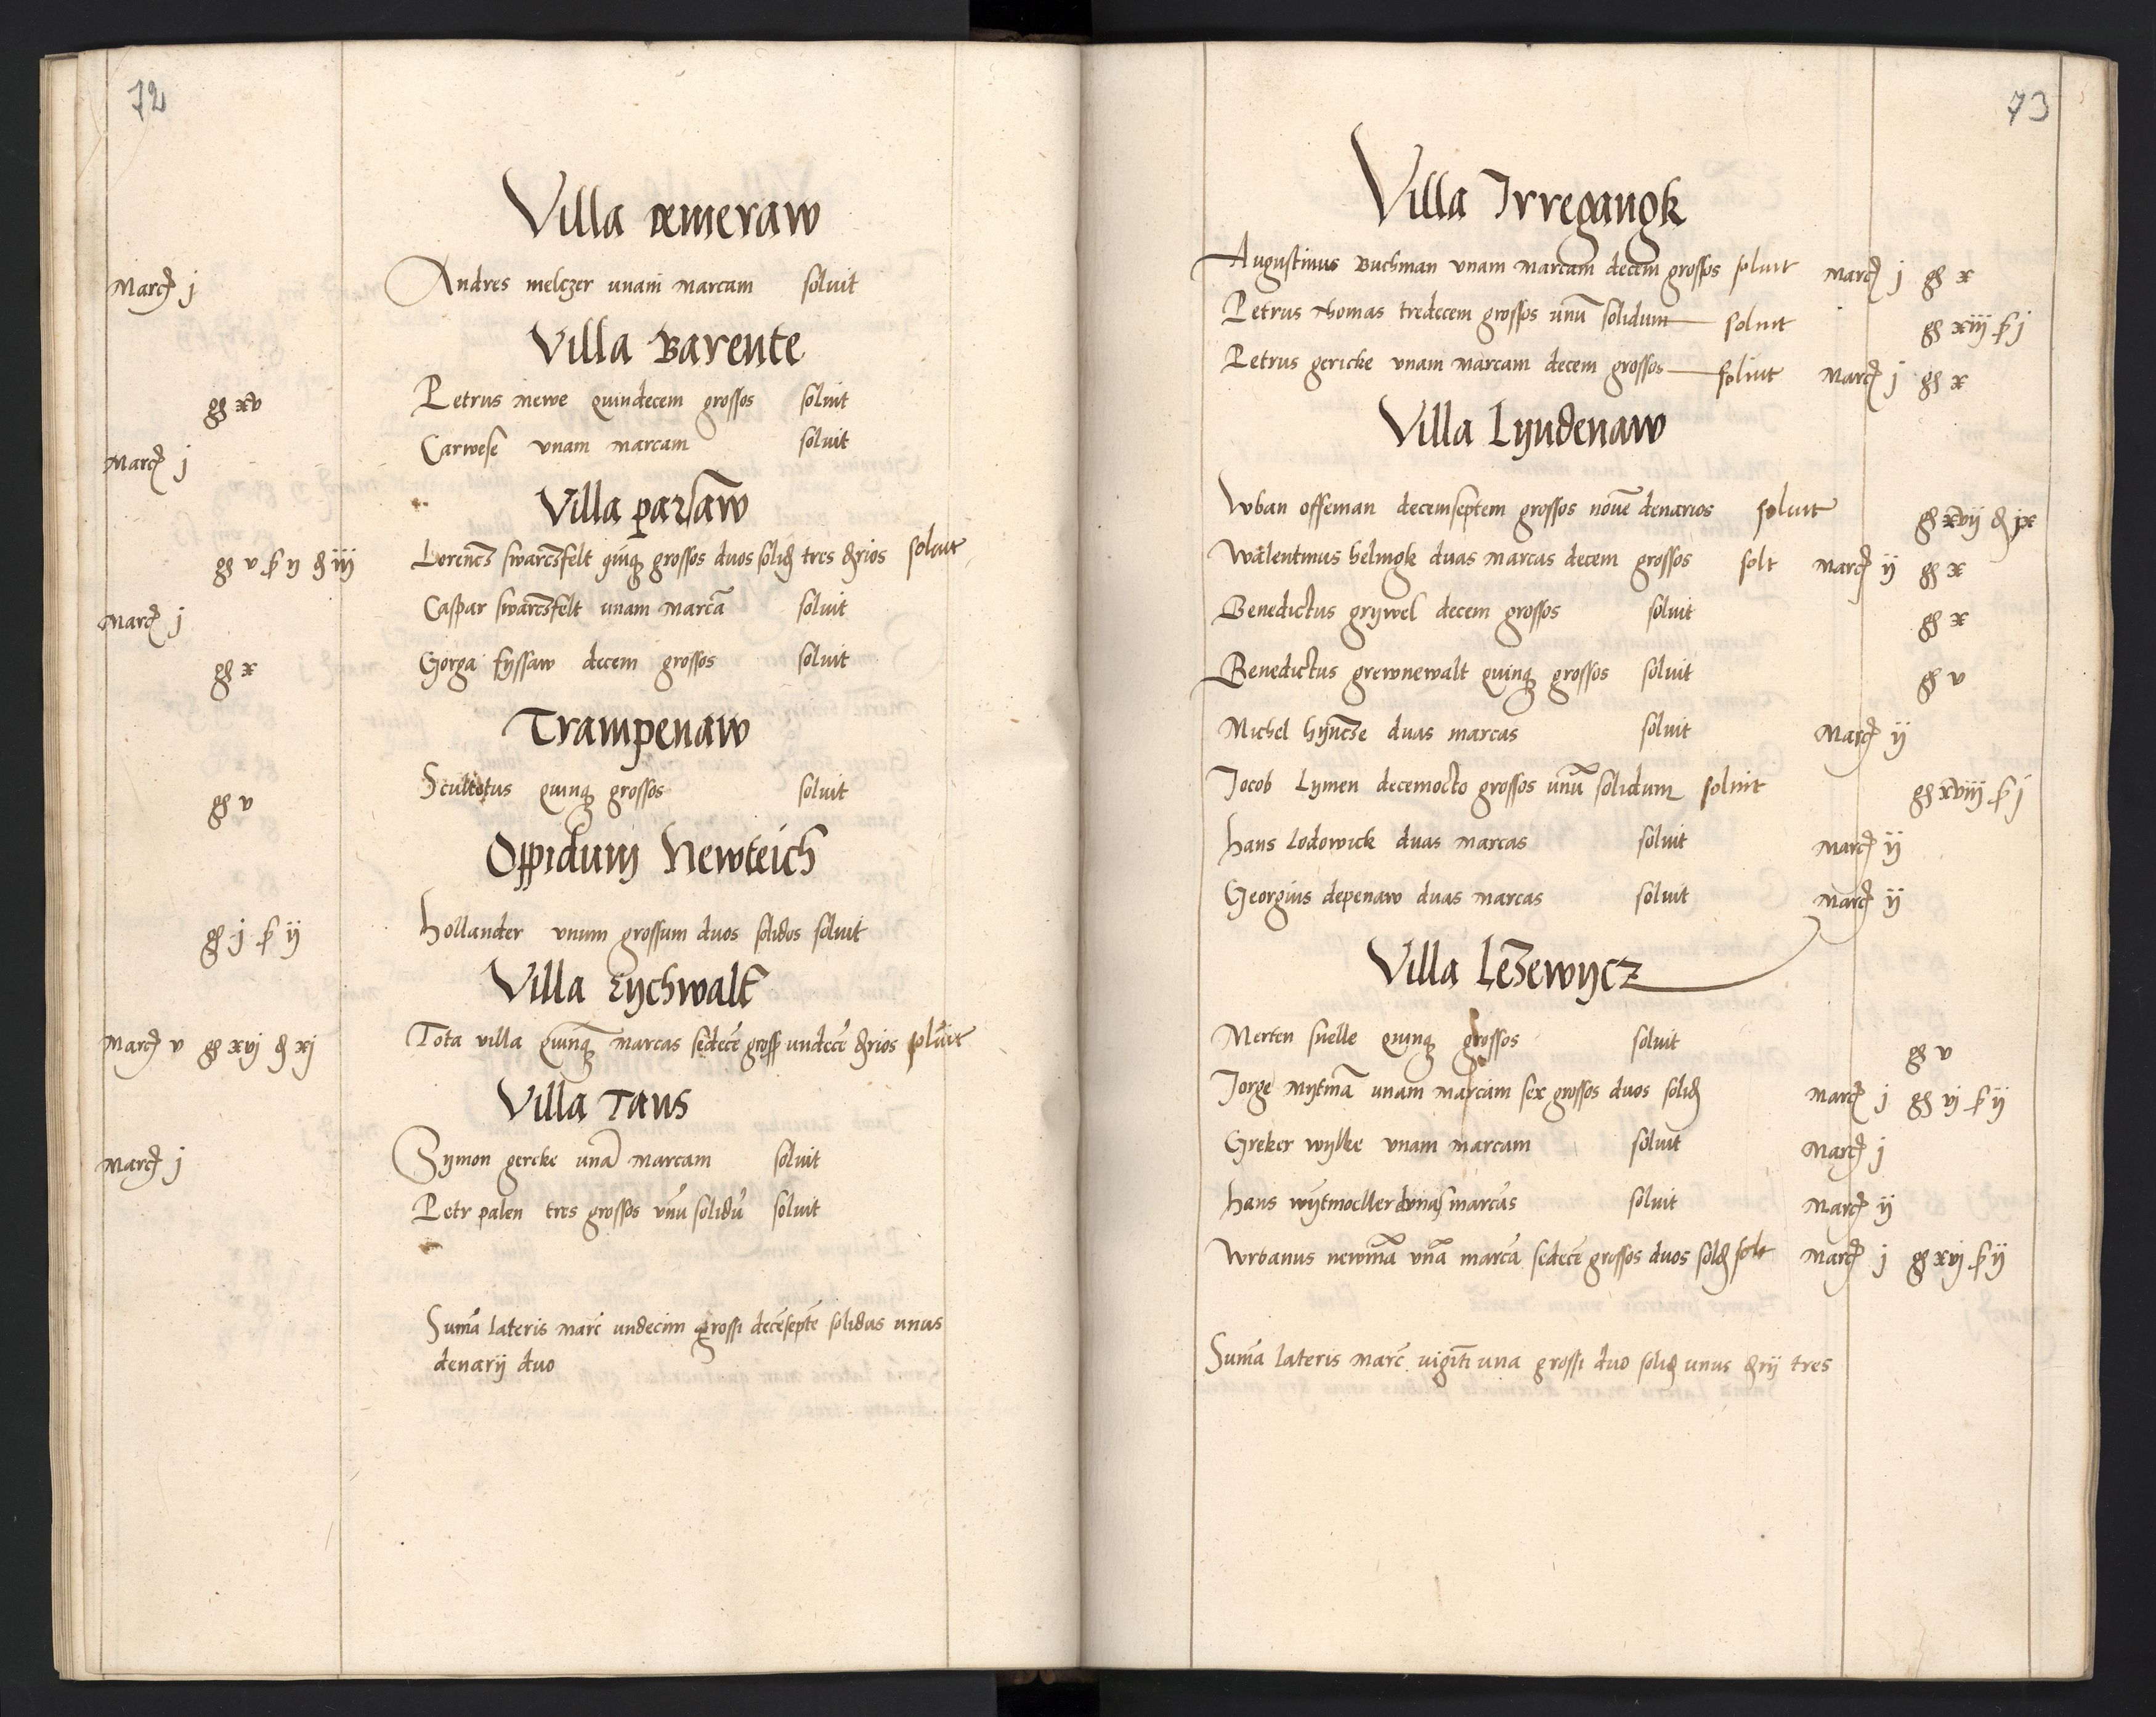 72
Villa Demeraw
Marcȝ j Andres melczer unam marcam soluit
Villa Barente
gȝ xv Petrus mewe quindecem grossos soluit
Marcȝ j Carwese vnam marcam soluit
Villa parsaw
gȝ v ꝭ ij ȝ iij Lorencȝ swarcȝfelt quiqȝ grossos duos soliȝ tres ȝrios soluit
Marcȝ j Caspar swarcȝfelt unam marcā soluit
gȝ x Gorga fyssaw decem grossos soluit
Trampenaw
gȝ v Scultetus quinqȝ grossos soluit
Oppidum Newteich
gȝ j ꝭ ij Hollander vnum grossum duos solidos soluit
Villa Eychwalt
Marcȝ v gȝ xvj ȝ xj Tota villa quinqȝ marcas sedecē gross undecē ȝrios soluit
Villa Tans
Marcȝ j Symon gercke unā marcam soluit
Petr palen tres grossos vnū solidū soluit
Sumā lateris marc undecim grossi decēseptē solidus unus
denarij duo
73
Villa Irregangk
Augustinus Buchman vnam marcam decem grossos soluit Marcȝ j gȝ x
Petrus Thomas tredecem grossos unū solidum soluit gȝ xiij ꝭ j
Petrus gericke vnam marcam decem grossos soluit Marcȝ j gȝ x
Villa Lyndenaw
Wban offeman decemseptem grossos nouē denarios soluit gȝ xvij ȝ ix
Walentinus helmgk duas marcas decem grossos solt Marcȝ ij gȝ x
Benedictus grywel decem grossos soluit gȝ x
Benedictus grewnewalt quinqȝ grossos soluit gȝ v
Michel hyncȝe duas marcas soluit Marcȝ ij
Jocob Lymen decemocto grossos unū solidum soluit gȝ xviij ꝭ j
Hans Lodowick duas marcas soluit Marcȝ ij
Georgius depenaw duas marcas soluit Marcȝ ij
Villa Leȝewycz
Merten snelle quinqȝ grossos soluit gȝ v
Jorge mytmā unam marcam sex grossos duos soliȝ Marcȝ j gȝ vj ꝭ ij
Greker wylke vnam marcam soluit Marcȝ j
Hans wytmoeller duas marcas soluit Marcȝ ij
Wrbanus newmā vnā marcā sedecē grossos duos solȝ solt Marcȝ j gȝ xvj ꝭ ij
Sumā lateris marc uigīti una grossi duo soliȝ unus ȝrij tres